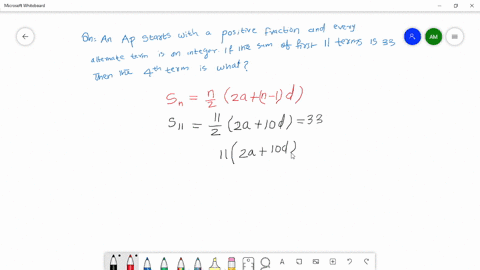 Microsoft Whiteboard
Qn: An AP starts with a positive fraction and every
alternate term is an integer if the sum of first 11 terms is 33
Then the 4th term is what?
AM
Sn = n/2 (2a+(n-1)d)
S11 = 11/2 (2a+10d) = 33
11(2a+10d)